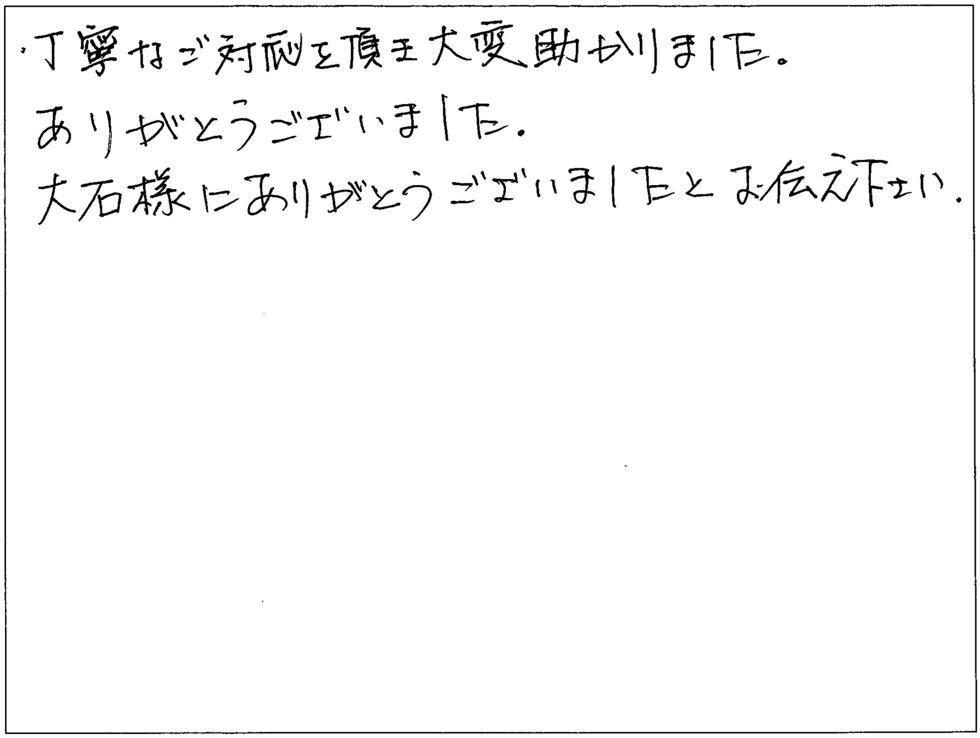 ・丁寧なご対応を頂き大変助かりました。
ありがとうございました.
大石様にありがとうございましたとお伝え下さい.